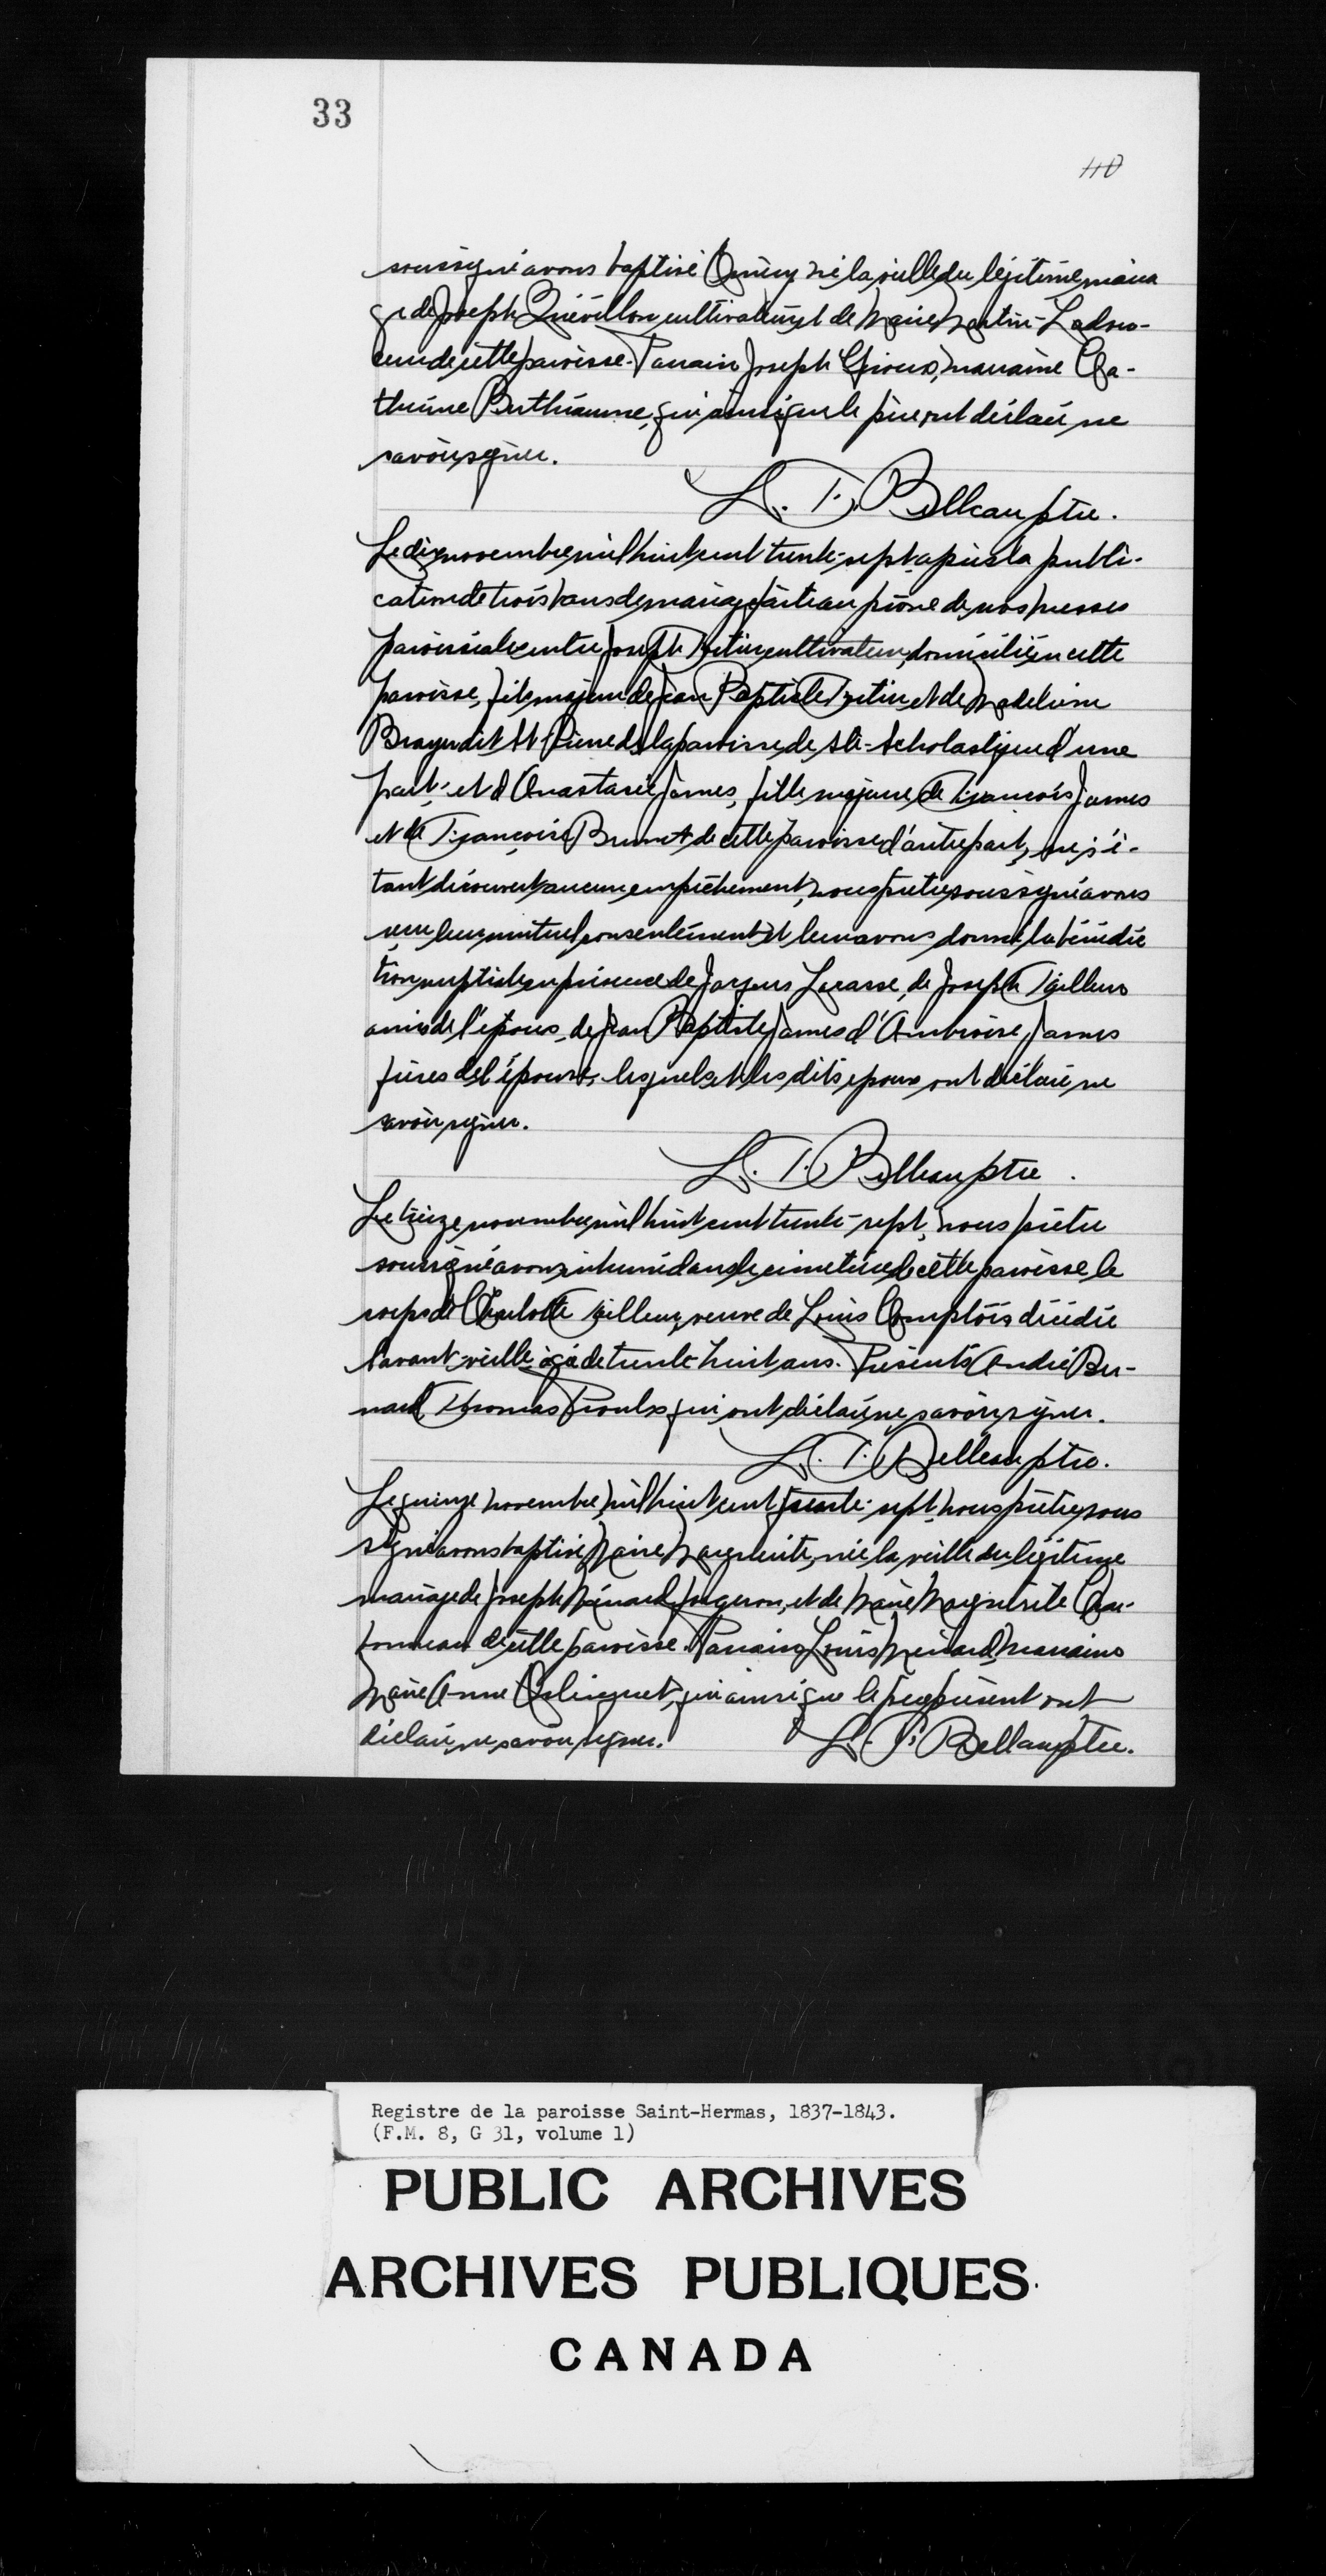 33
110
soussigné avons baptisé né la veille du légitime maria
ge de Joseph Quévillon cultivateur et de Marie Martin-Ladou-
ceur de cette paroisse. Parrain Joseph Giroux, marraine Ca-
therine Berthiaume, qui ainsi que le père ont déclaré ne
savoir signer.
L. T. Belleau ptre.
Le dix novembre mil huit cent trente-sept, après la publi-
cation de trois bans de mariage faite au prône de nos messes
paroissiales entre Joseph cultivateur, domicilié en cette
paroisse, fils majeur de Jean Baptiste et de Madeleine
Brayer dit St Pierre de la paroisse de Ste-Scholastique d'une
part; et d'Anastasie James, fille majeure de François James
et de Françoise Brunet de cette paroisse d'autre part, ne s'é-
tant découvert aucun empêchement, nous prêtre soussigné avons
reçu leur mutuel consentement et leur avons donné la bénédic
tion nuptiale en présence de Jacques Lacasse, de Joseph Tailleur
amis de l'époux, de Jean Baptiste James d'Ambroise James
frères de l'épouse, lesquels et les dits époux ont déclaré ne
savoir signer.
L. T. Belleau ptre.
Le treize novembre mil huit cent trente-sept, nous prêtre
soussigné avons inhumé dans le cimetière de cette paroisse le
corps de Charlotte Tailleur, veuve de Louis Comptois décédée
l'avant-veille âgée de trente huit ans. Présents André Ber-
nard, Thomas Proulx qui ont déclaré ne savoir signer.
L. T. Belleau ptre.
Le quinze novembre, mil huit cent trente-sept, nous prêtre sous
signé avons baptisé Marie Marguerite, née la veille du légitime
mariage de Joseph Ménard forgeron, et de Marie Marguerite Char-
bonneau de cette paroisse. Parrain Louis Ménard, marraine
Marie Anne qui ainsi que le père présent ont
déclaré ne savoir signer. L. T. Belleau ptre.
Registre de la paroisse Saint-Hermas, 1837-1843.
(F.M. 8, G 31, volume 1)
PUBLIC ARCHIVES
ARCHIVES PUBLIQUES
CANADA